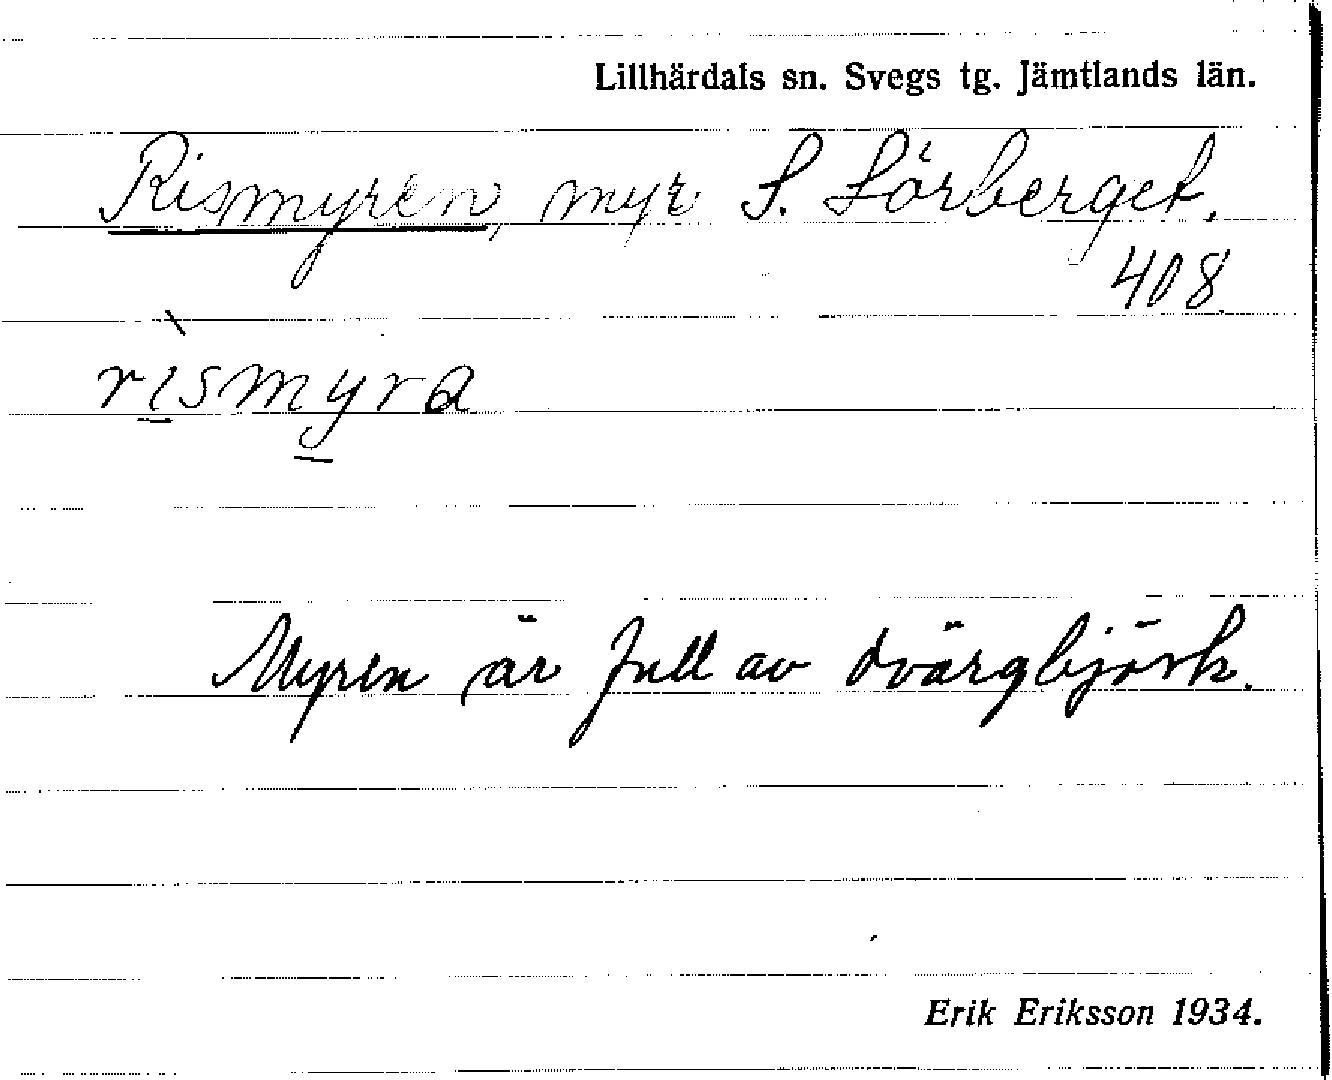 Lillhärdals sn. Svegs tg. Jämtlands län.
Rismyren, myr S. Sörberget.
408.
rismyra
Myren är full av dvärgbjörk.
Erik Eriksson 1934.